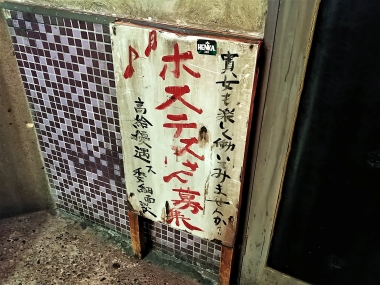 HENKA
貴女も楽しく働いてみませんか
ホステスさん募集
高給優遇ス 委細面談